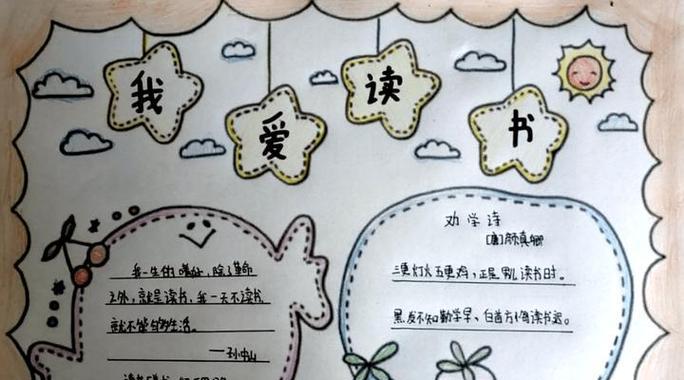 我爱读书
我一生的嗜好,除了革命
之外,就是读书,我一天不读书,
就不能够生活。
——孙中山
劝学诗
[唐]颜真卿
三更灯火五更鸡,正是男儿读书时。
黑发不知勤学早,白首方悔读书迟。